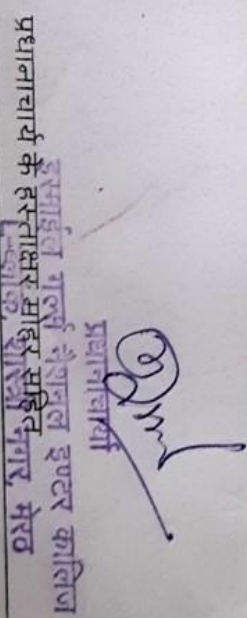 प्रधानाचार्या
इस्माईल गर्ल्स नैशनल इण्टर कालिज
शास्त्री नगर, मेरठ
प्रधानाचार्य के हस्ताक्षर मोहर सहित